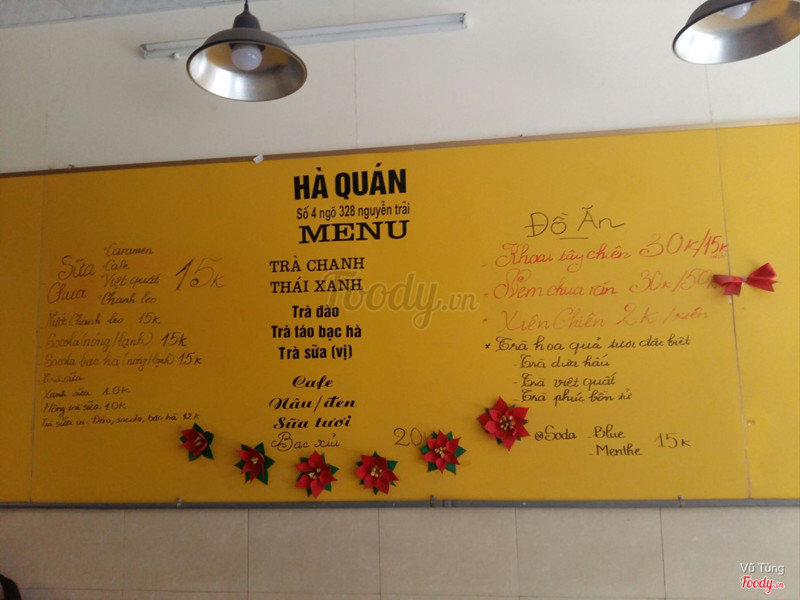 HÀ QUÁN
Số 4 ngõ 328 nguyễn trãi
MENU
Sữa Chua
- Caramen
- Cafe
- Việt quất
- Chanh leo
15K
Việt Chanh leo 15K
Socola (nóng/lạnh) 15K
Socola bạc hà (nóng/lạnh) 15K
- Trà sữa
Xanh sữa 10K
Hồng trà sữa 10K
Trà sữa vị: Đào, socola, bạc hà 12K
TRÀ CHANH
THÁI XANH
Trà đào
Trà táo bạc hà
Trà sữa (vị)
Cafe
Nâu/đen
Sữa tươi
Bạc xỉu 20
Đồ Ăn
- Khoai tây chiên 30K/15K
- Nem chua rán 30K/50
- Xiên Chiên 2K/xiên
* Trà hoa quả tươi đặc biệt
- Trà dưa hấu
- Trà việt quất
- Trà phúc bồn tử
@Soda - Blue
- Menthe
15K
Foody.vn
Vũ Tùng
Foody.vn